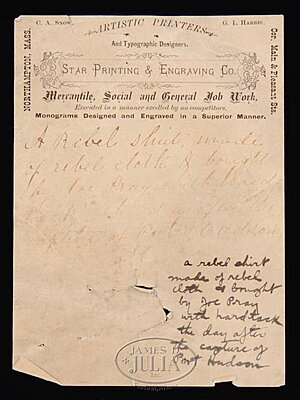 C. A. Snow.
G. L. Harris.
ARTISTIC PRINTERS
And Typographic Designers.
NORTHAMPTON, MASS.
Cor. Main & Pleasant Sts.
STAR PRINTING & ENGRAVING CO.
Mercantile, Social and General Job Work,
Executed in a manner excelled by no competitors.
Monograms Designed and Engraved in a Superior Manner.
A Rebel shirt made
of rebel cloth & bought
by Joe Pray
with hard
tack the day after the
capture of Port Hudson
a rebel shirt
made of rebel
cloth & bought
by Joe Pray
with hard tack
the day after
the capture of
Port Hudson
JAMES
JULIA
Inc.